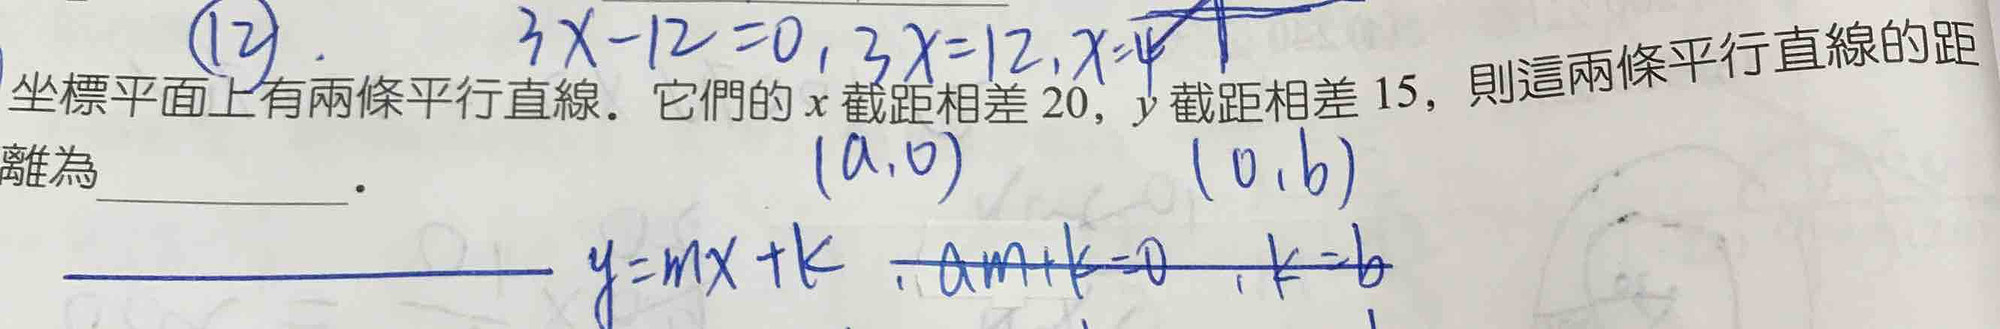 (12). 3x-12=0, 3x=12, x=4
坐標平面上有兩條平行直線．它們的 x 截距相差 20，y 截距相差 15，則這兩條平行直線的距
離為__________．
(a,0) (0,b)
y=mx+k , am+k=0 , k=b